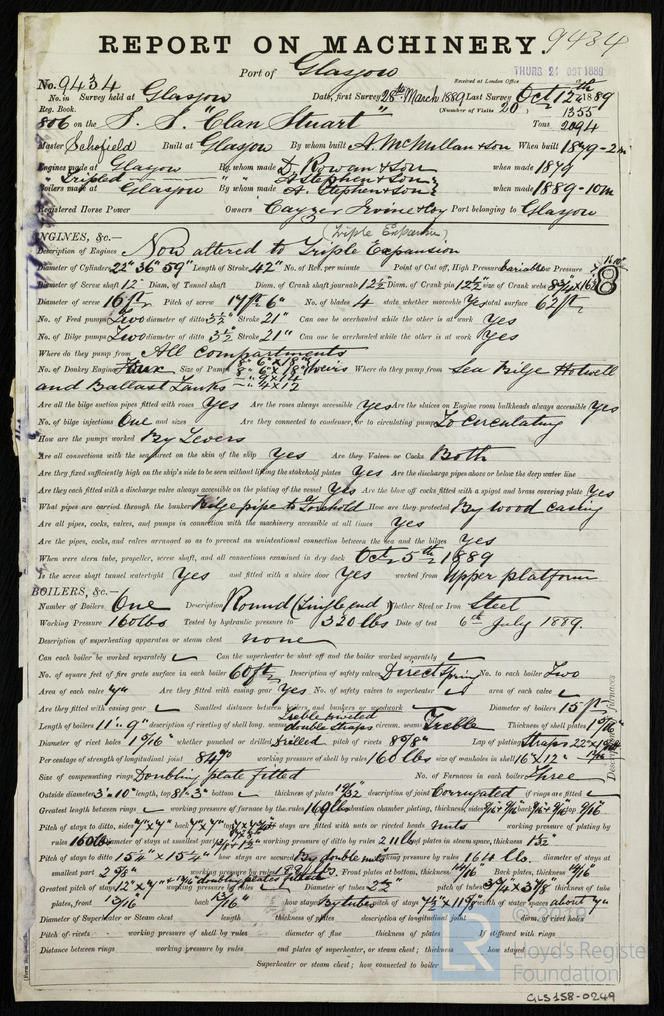 REPORT ON MACHINERY. 9434
Port of Glasgow
Received at London Office THURS 24 OCT 1889
No. 9434
No. in Survey held at Glasgow Date, first Survey 28th March 1889 Last Survey Oct 12th 1889
Reg. Book. (Number of Visits 20) 1355
806 on the S.S. "Clan Stuart" Tons 2094
Master Schofield Built at Glasgow By whom built A. McMillan & Son When built 1879-2m
Engines made at Glasgow By whom made D. Rowan & Son when made 1879
" Tripled " A. Stephen & Son
Boilers made at Glasgow By whom made A. Stephen & Son when made 1889-10m
Registered Horse Power Owners Cayzer Irvine & Coy Port belonging to Glasgow
ENGINES, &c.— (Triple Expansion)
Description of Engines Now altered to Triple Expansion
Diameter of Cylinders 22" 36" 59" Length of Stroke 42" No. of Rev. per minute Point of Cut off, High Pressure Variable Low Pressure
Diameter of Screw shaft 12" Diam. of Tunnel shaft Diam. of Crank shaft journals 12½ Diam. of Crank pin 12½" size of Crank webs 8¾" x 16½
Diameter of screw 16ft Pitch of screw 17ft 6" No. of blades 4 state whether moveable Yes total surface 62ft
No. of Feed pumps Two diameter of ditto 3½" Stroke 21" Can one be overhauled while the other is at work Yes
No. of Bilge pumps Two diameter of ditto 3½" Stroke 21" Can one be overhauled while the other is at work Yes
Where do they pump from All compartments
No. of Donkey Engines Four Size of Pumps Where do they pump from Sea Bilge Hotwell
and Ballast Tanks
Are all the bilge suction pipes fitted with roses Yes Are the roses always accessible Yes Are the sluices on Engine room bulkheads always accessible Yes
No. of bilge injections One and sizes Are they connected to condenser, or to circulating pump To circulating
How are the pumps worked By Levers
Are all connections with the sea direct on the skin of the ship Yes Are they Valves or Cocks Both
Are they fixed sufficiently high on the ship's side to be seen without lifting the stokehold plates Yes Are the discharge pipes above or below the deep water line
Are they each fitted with a discharge valve always accessible on the plating of the vessel Yes Are the blow off cocks fitted with a spigot and brass covering plate Yes
What pipes are carried through the bunkers Bilge pipe to forehold How are they protected By wood casing
Are all pipes, cocks, valves, and pumps in connection with the machinery accessible at all times Yes
Are the pipes, cocks, and valves arranged so as to prevent an unintentional connection between the sea and the bilges Yes
When were stern tube, propeller, screw shaft, and all connections examined in dry dock Oct 5th 1889
Is the screw shaft tunnel watertight Yes and fitted with a sluice door Yes worked from Upper platform
BOILERS, &c.—
Number of Boilers One Description Round (Single end) Whether Steel or Iron Steel
Working Pressure 160 lbs Tested by hydraulic pressure to 320 lbs Date of test 6th July 1889.
Description of superheating apparatus or steam chest none
Can each boiler be worked separately ✓ Can the superheater be shut off and the boiler worked separately ✓
No. of square feet of fire grate surface in each boiler 60ft Description of safety valves Direct Spring No. to each boiler Two
Area of each valve Are they fitted with easing gear Yes No. of safety valves to superheater ✓ area of each valve ✓
Are they fitted with easing gear ✓ Smallest distance between boilers and bunkers or woodwork ✓ Diameter of boilers 15 ft
Length of boilers 11'-9" description of riveting of shell long. seams Treble riveted double straps circum. seams Treble Thickness of shell plates
Diameter of rivet holes 1 5/16" whether punched or drilled Drilled pitch of rivets 8 5/8" Lap of plating Straps
Per centage of strength of longitudinal joint working pressure of shell by rules 160 lbs size of manholes in shell 16" x 12"
Size of compensating rings Doubling plate fitted No. of Furnaces in each boiler Three
Outside diameter 3'-10" length, top bottom ✓ thickness of plates description of joint Corrugated if rings are fitted ✓
Greatest length between rings ✓ working pressure of furnace by the rules combustion chamber plating, thickness, sides back top
Pitch of stays to ditto, sides 7" x 7" back 7" x 7" top If stays are fitted with nuts or riveted heads nuts working pressure of plating by
rules 160 lbs Diameter of stays at smallest part working pressure of ditto by rules end plates in steam space, thickness
Pitch of stays to ditto 15¼" x 15¼" how stays are secured By double nuts working pressure by rules diameter of stays at
smallest part working pressure by rules Front plates at bottom, thickness Back plates, thickness
Greatest pitch of stays doubling plates fitted working pressure by rules ✓ Diameter of tubes pitch of tubes thickness of tube
plates, front back how stayed By tubes pitch of stays width of water spaces
Diameter of Superheater or Steam chest length thickness of plates description of longitudinal joint diam. of rivet holes
Pitch of rivets working pressure of shell by rules diameter of flue thickness of plates If stiffened with rings
Distance between rings working pressure by rules end plates of superheater, or steam chest; thickness how stayed
Superheater or steam chest; how connected to boiler
© 2019
Lloyd's Register
Foundation
GLS158-0249